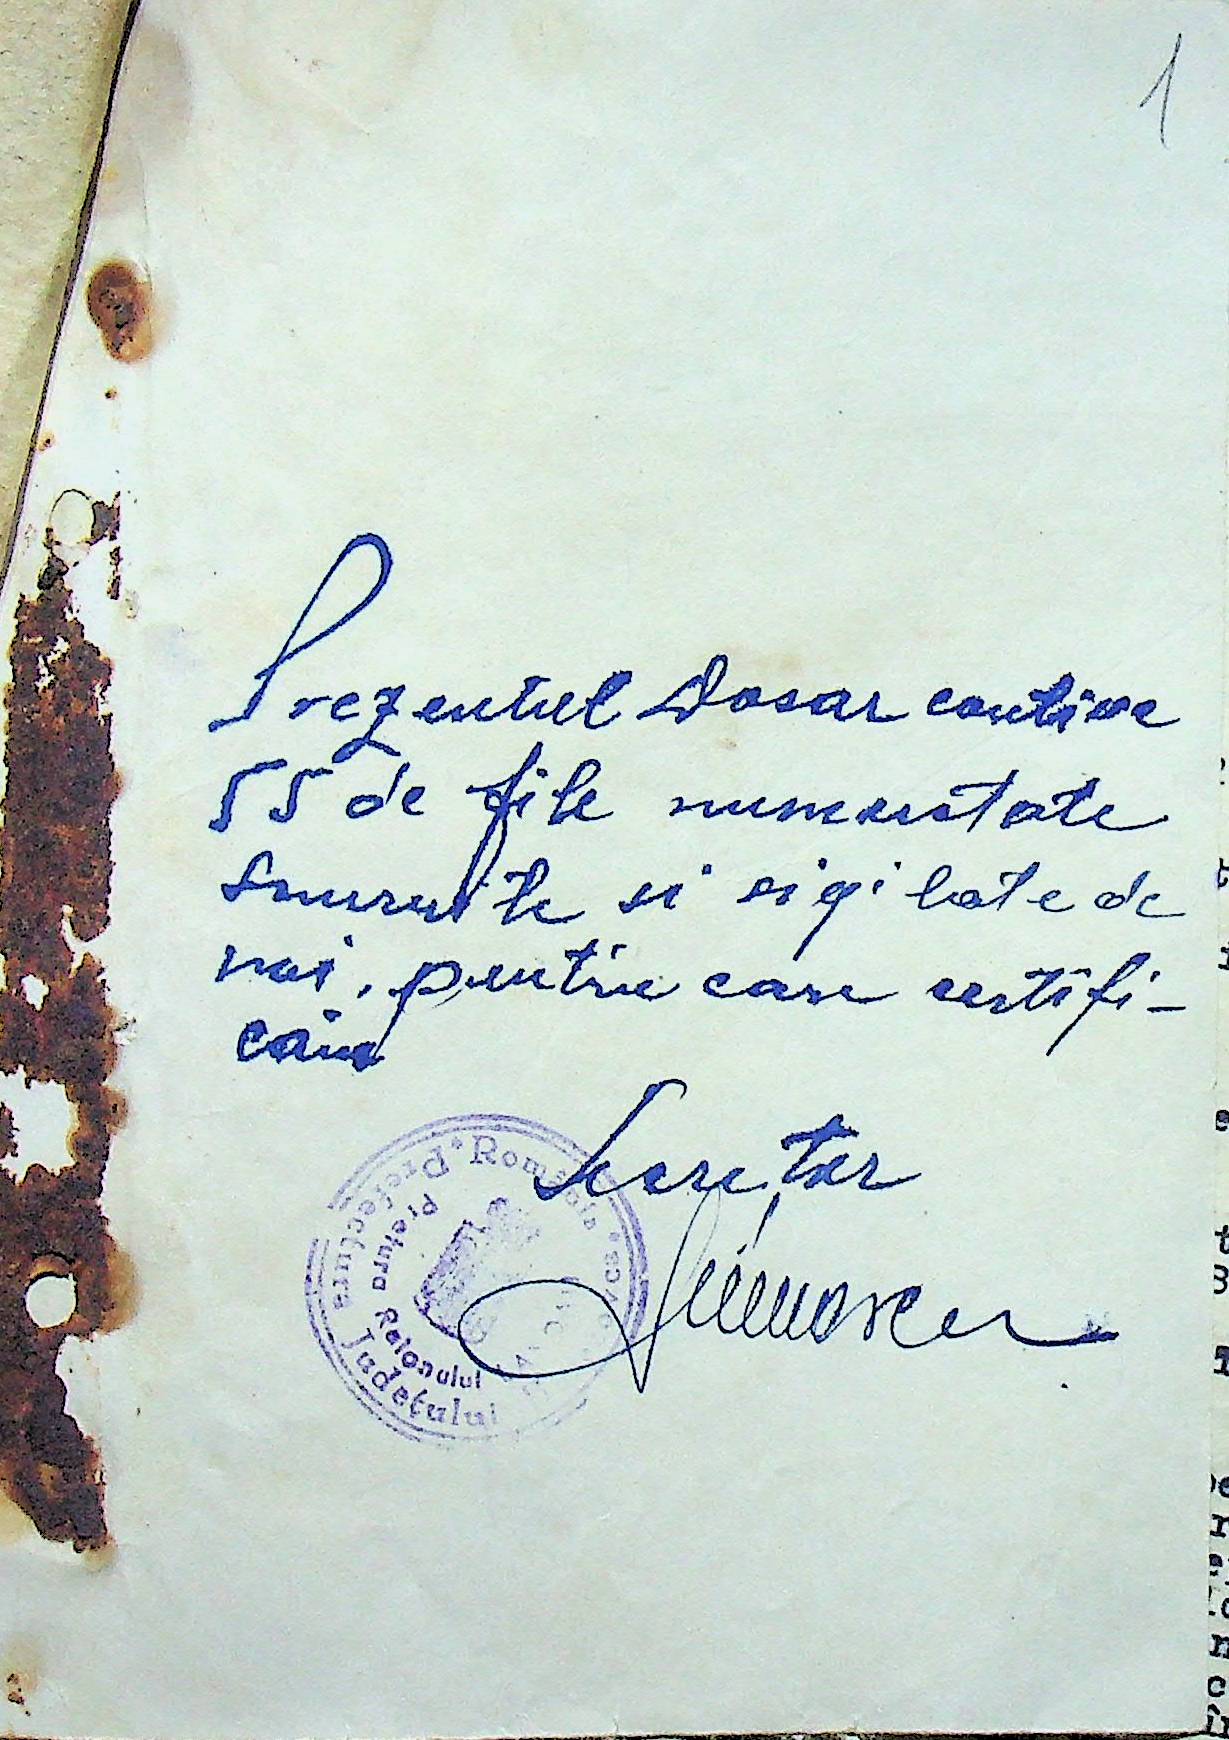 1
Prezentul Dosar contine
55 de file numerotate
snuruite si sigilate de
noi, pentru care certifi-
căm
Secretar
România
Prefectura Județului
Pretura Raionului